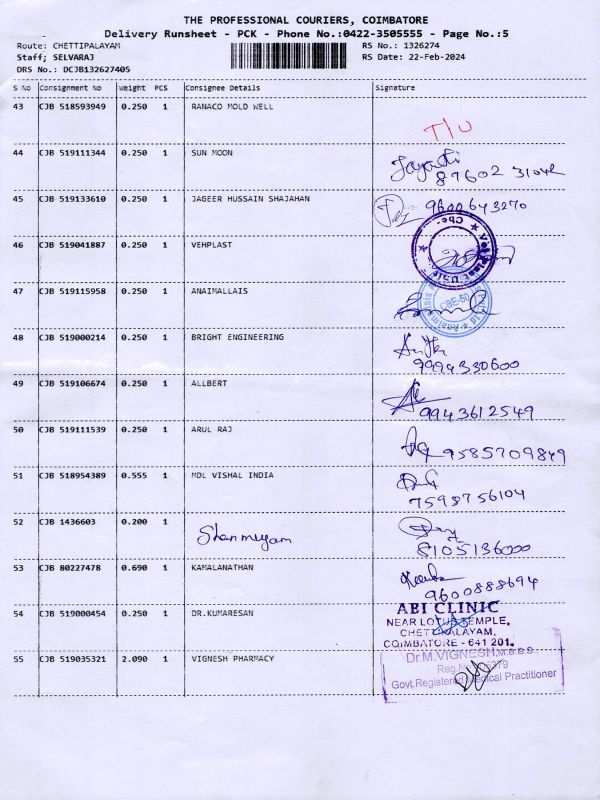 THE PROFESSIONAL COURIERS, COIMBATORE
Delivery Runsheet - PCK - Phone No.:0422-3505555 - Page No.:5
Route: CHETTIPALAYAM RS No.: 1326274
Staff; SELVARAJ RS Date: 22-Feb-2024
DRS No.: DCJB132627405
S No Consignment No Weight PCS Consignee Details Signature
43 CJB 518593949 0.250 1 RANACO MOLD WELL
T/U
44 CJB 519111344 0.250 1 SUN MOON
89602 31042
45 CJB 519133610 0.250 1 JAGEER HUSSAIN SHAJAHAN
9600643270
46 CJB 519041887 0.250 1 VEHPLAST
Cbe-
47 CJB 519115958 0.250 1 ANAIMALLAIS
CBE-50
48 CJB 519000214 0.250 1 BRIGHT ENGINEERING
9994330600
49 CJB 519106674 0.250 1 ALLBERT
9943612549
50 CJB 519111539 0.250 1 ARUL RAJ
9585709849
51 CJB 518954389 0.555 1 MDL VISHAL INDIA
7598756104
52 CJB 1436603 0.200 1 Shanmugam
8105136000
53 CJB 80227478 0.690 1 KAMALANATHAN
9600888694
54 CJB 519000454 0.250 1 DR.KUMARESAN
ABI CLINIC
NEAR LOTUS TEMPLE,
CHETTIPALAYAM,
COIMBATORE - 641 201.
55 CJB 519035321 2.090 1 VIGNESH PHARMACY
Dr.M.VIGNESH,M.B.B.S
Reg.No
Govt.Registered Medical Practitioner